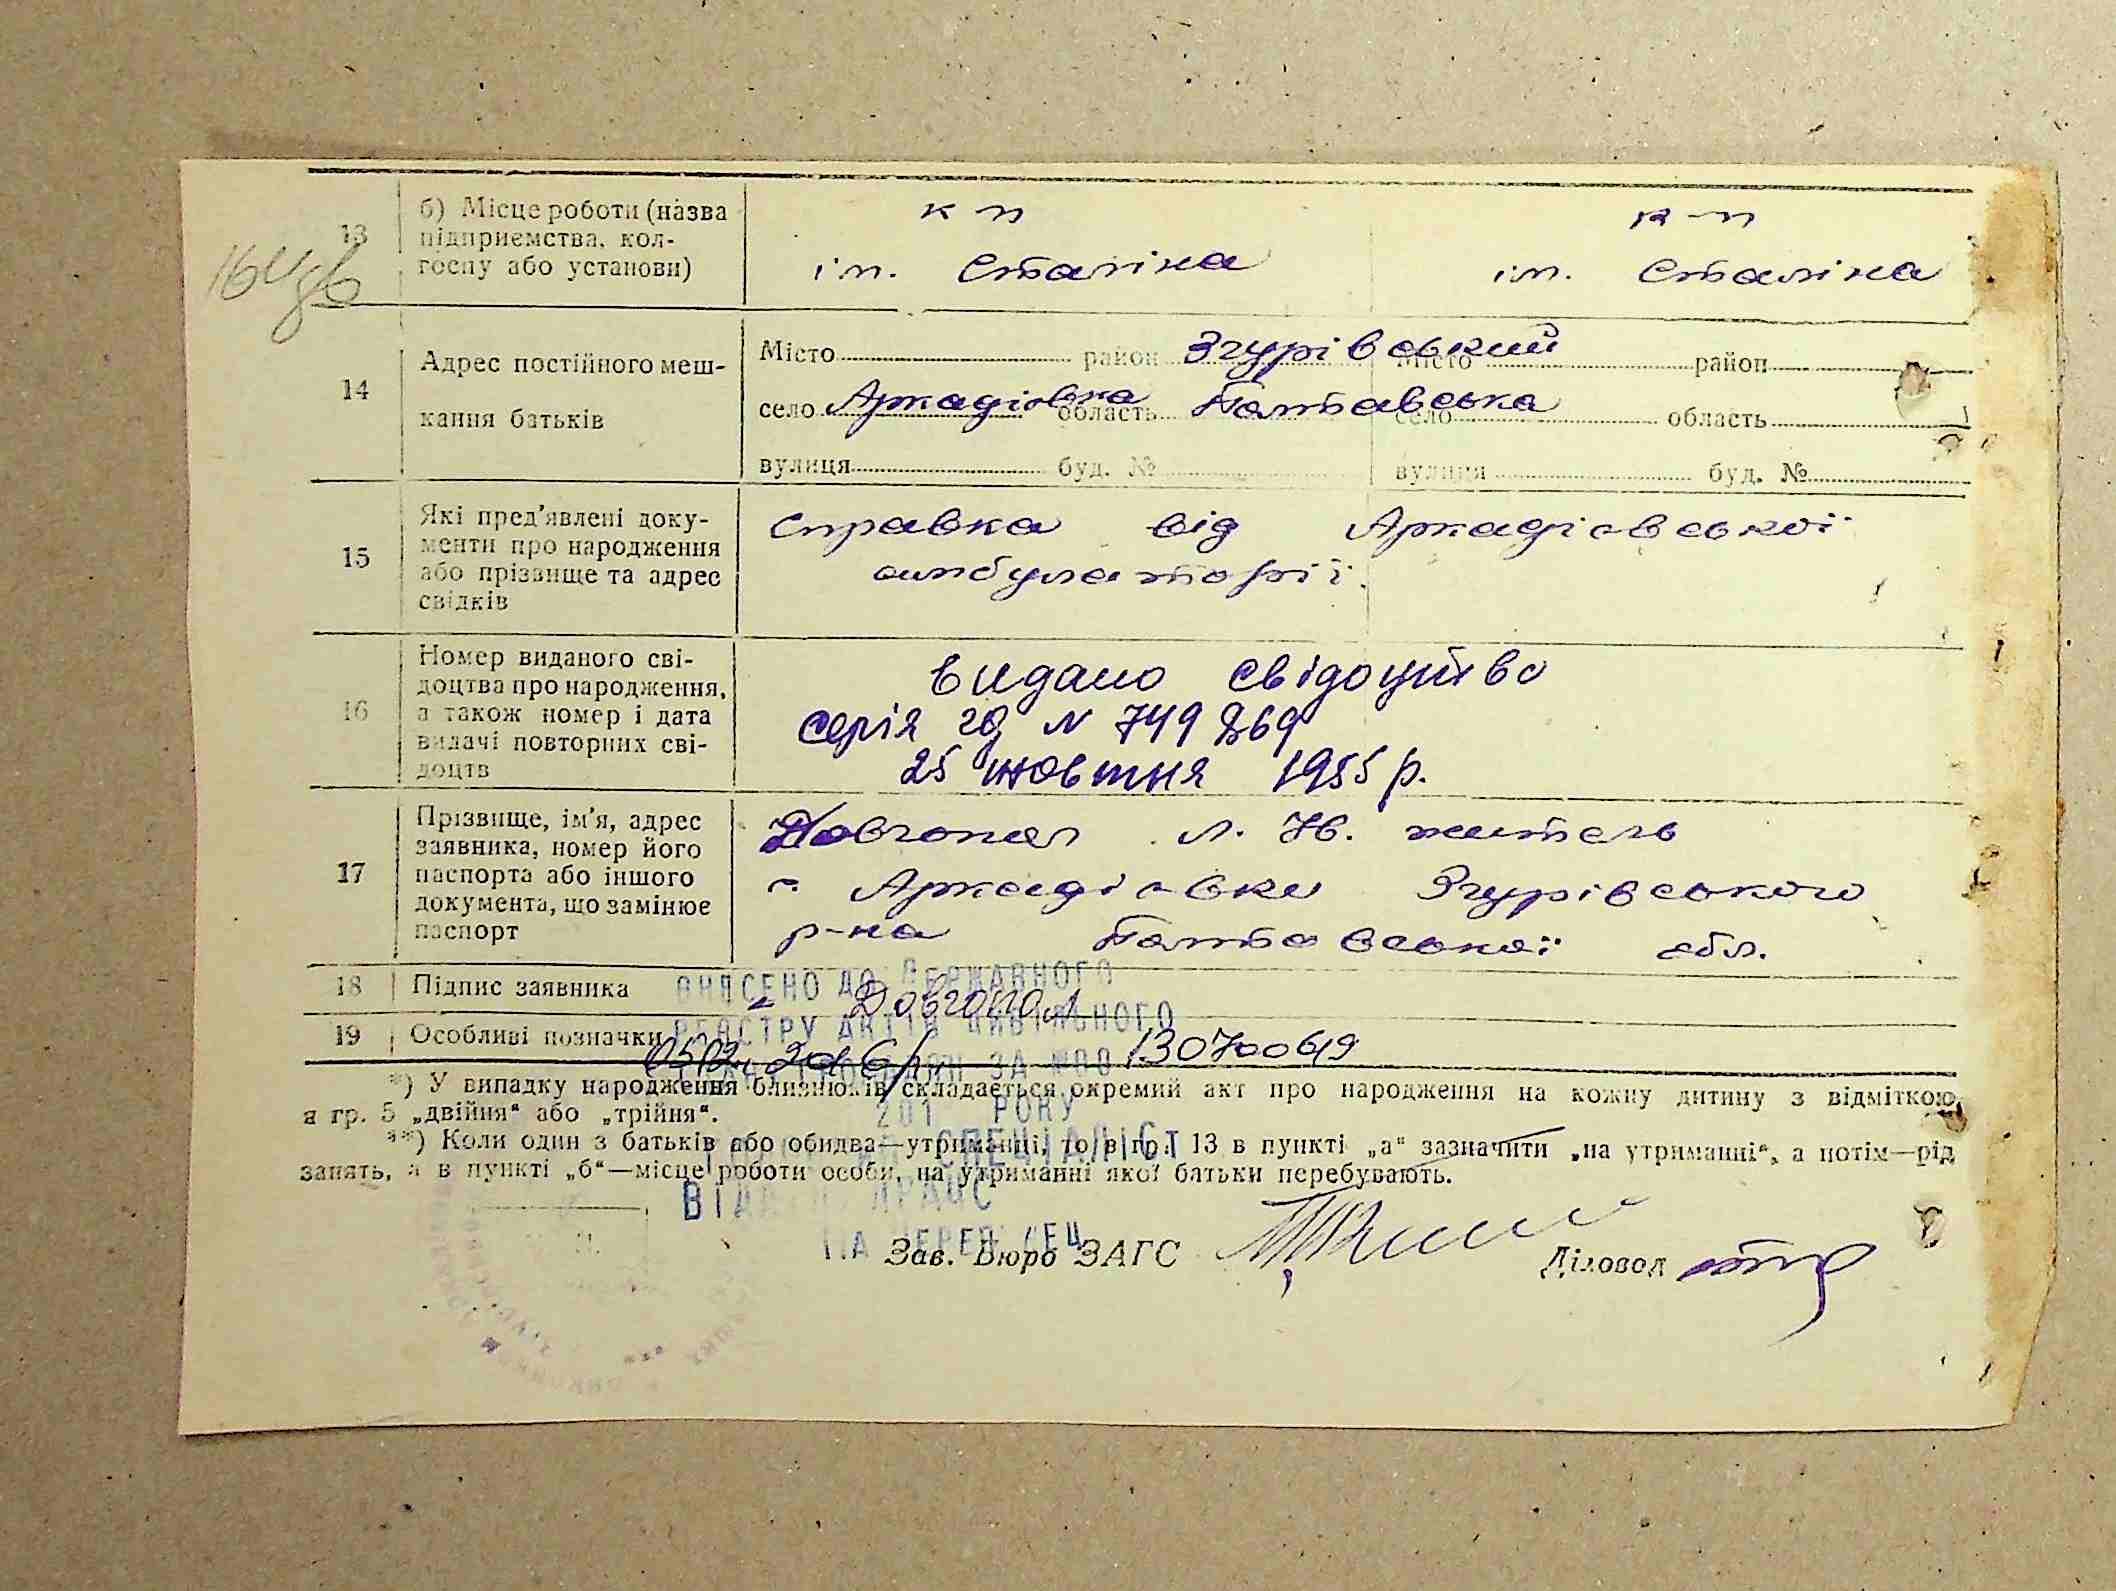 13 б) Місце роботи (назва підприємства, колгоспу або установи)
к-п к-п
ім. Сталіна ім. Сталіна
14 Адрес постійного мешкання батьків
Місто район Згурівський Місто район
село Аркадіовка область Полтавська село область
вулиця буд. № вулиця буд. №
15 Які пред'явлені документи про народження або прізвище та адрес свідків
Справка від Аркадіовської
амбулаторії.
16 Номер виданого свідоцтва про народження, а також номер і дата видачі повторних свідоцтв
видано свідоцтво
серія N 749869
25 жовтня 1955 р.
17 Прізвище, ім'я, адрес заявника, номер його паспорта або іншого документа, що замінює паспорт
Довгопол житель
с. Аркадіовки Згурівського
р-на Полтавської обл.
18 Підпис заявника Довгопол
19 Особливі позначки
ВНЕСЕНО ДО ДЕРЖАВНОГО
РЕЄСТРУ АКТІВ ЦИВІЛЬНОГО
ЗА №
201 РОКУ
СПЕЦІАЛІСТ
*) У випадку народження близнюків складається окремий акт про народження на кожну дитину з відміткою
в гр. 5 „двійня" або „трійня".
**) Коли один з батьків або обидва—утриманці, то в гр. 13 в пункті „а" зазначити „на утриманні", а потім—рід
занять, а в пункті „б"—місце роботи особи, на утриманні якої батьки перебувають.
Зав. Бюро ЗАГС Діловод